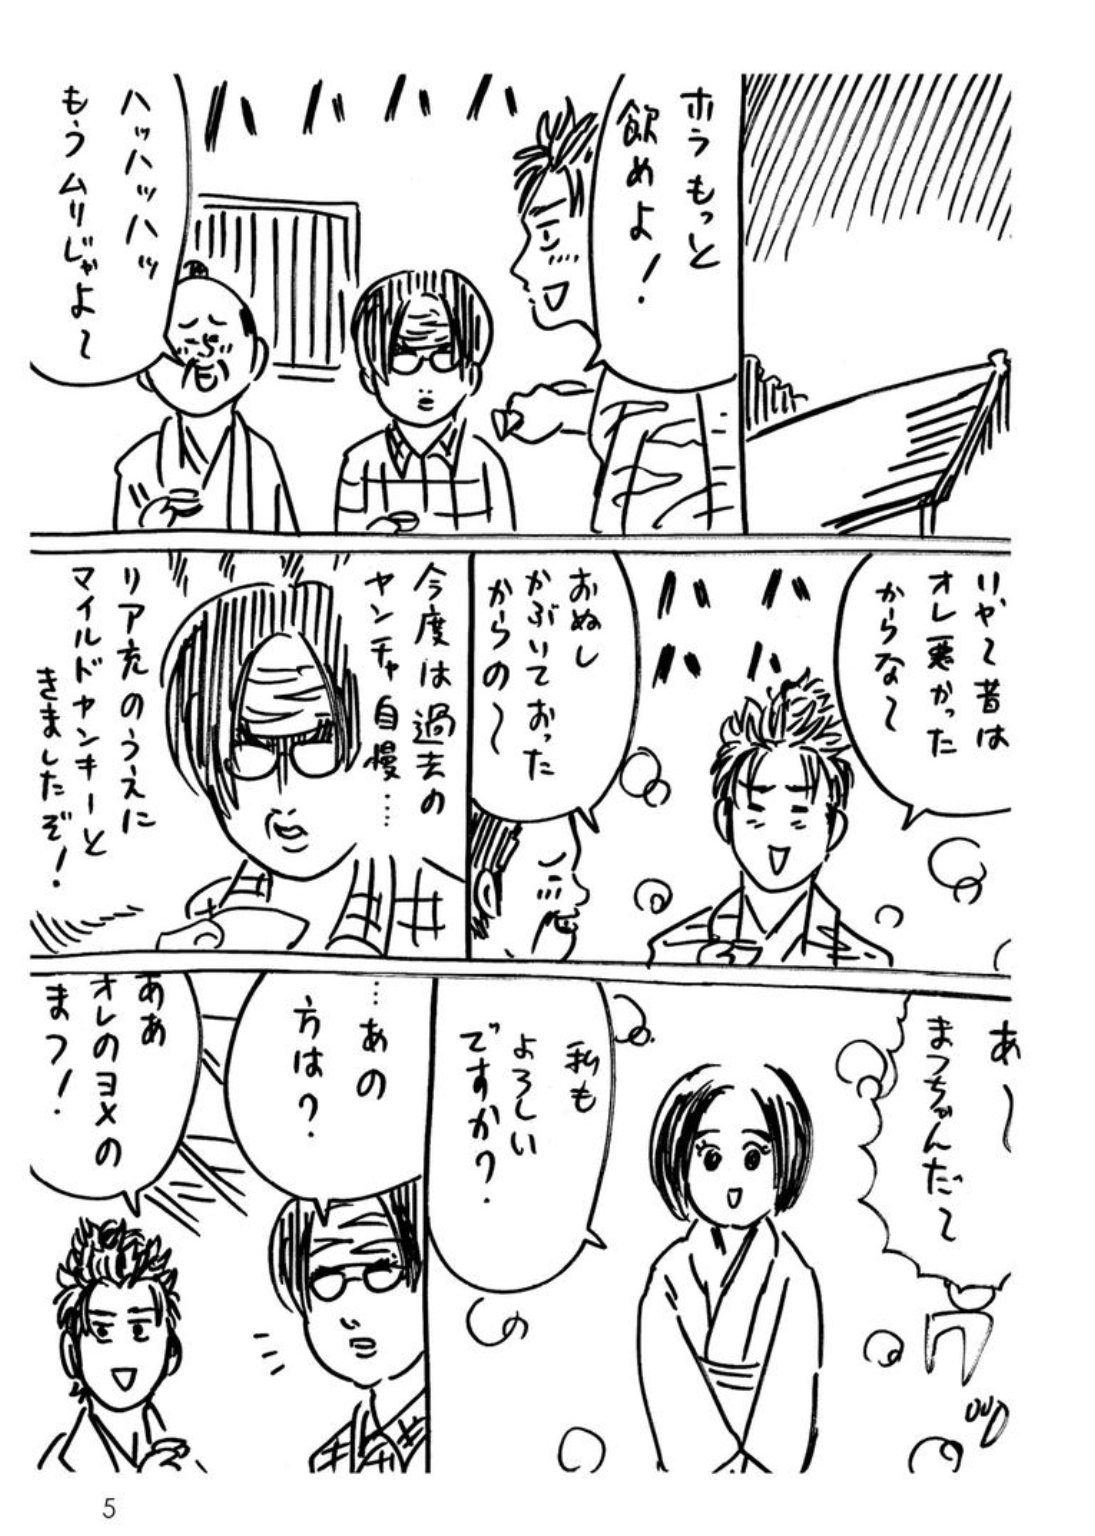 ホラもっと
飲めよ!
ハッハッハッ
もうムリじゃよ〜
いや〜昔は
オレ悪かった
からな〜
おぬし
かぶいておった
からの〜
今度は過去の
ヤンチャ自慢……
リア充のうえに
マイルドヤンキーと
きましたぞ!
あ〜
まつちゃんだ〜
私も
よろしい
ですか?
…あの
方は?
ああ
オレのヨメの
まつ!
5